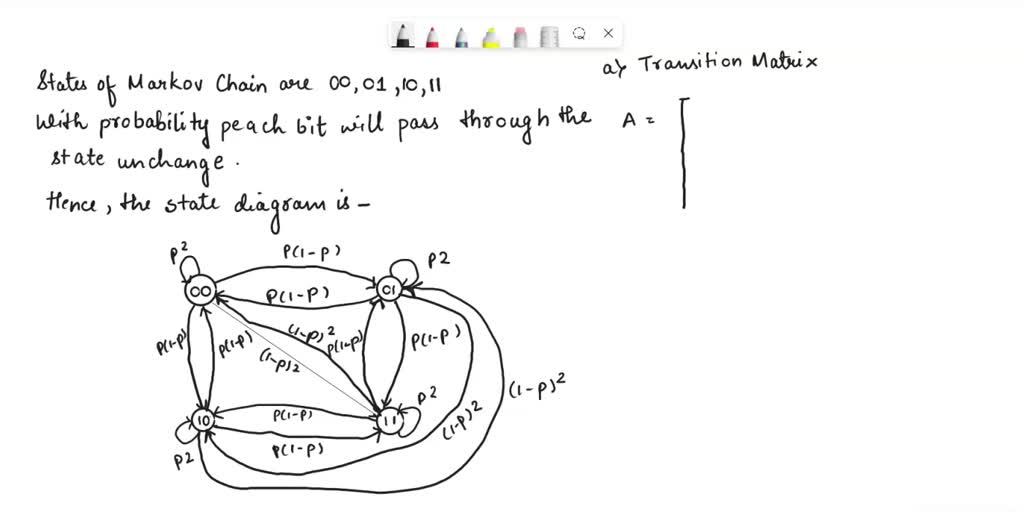 States of Markov Chain are 00, 01, 10, 11
With probability p each bit will pass through the
state unchange.
Hence, the state diagram is -
a) Transition Matrix
A = [
P² P(1-P) P2
00 P(1-P) 01
P(1-P) P(1-P) (1-P)² P(1-P) P(1-P)
(1-P)2
(1-P)²
10 P(1-P) 11 P²
(1-P)2
P2 P(1-P)